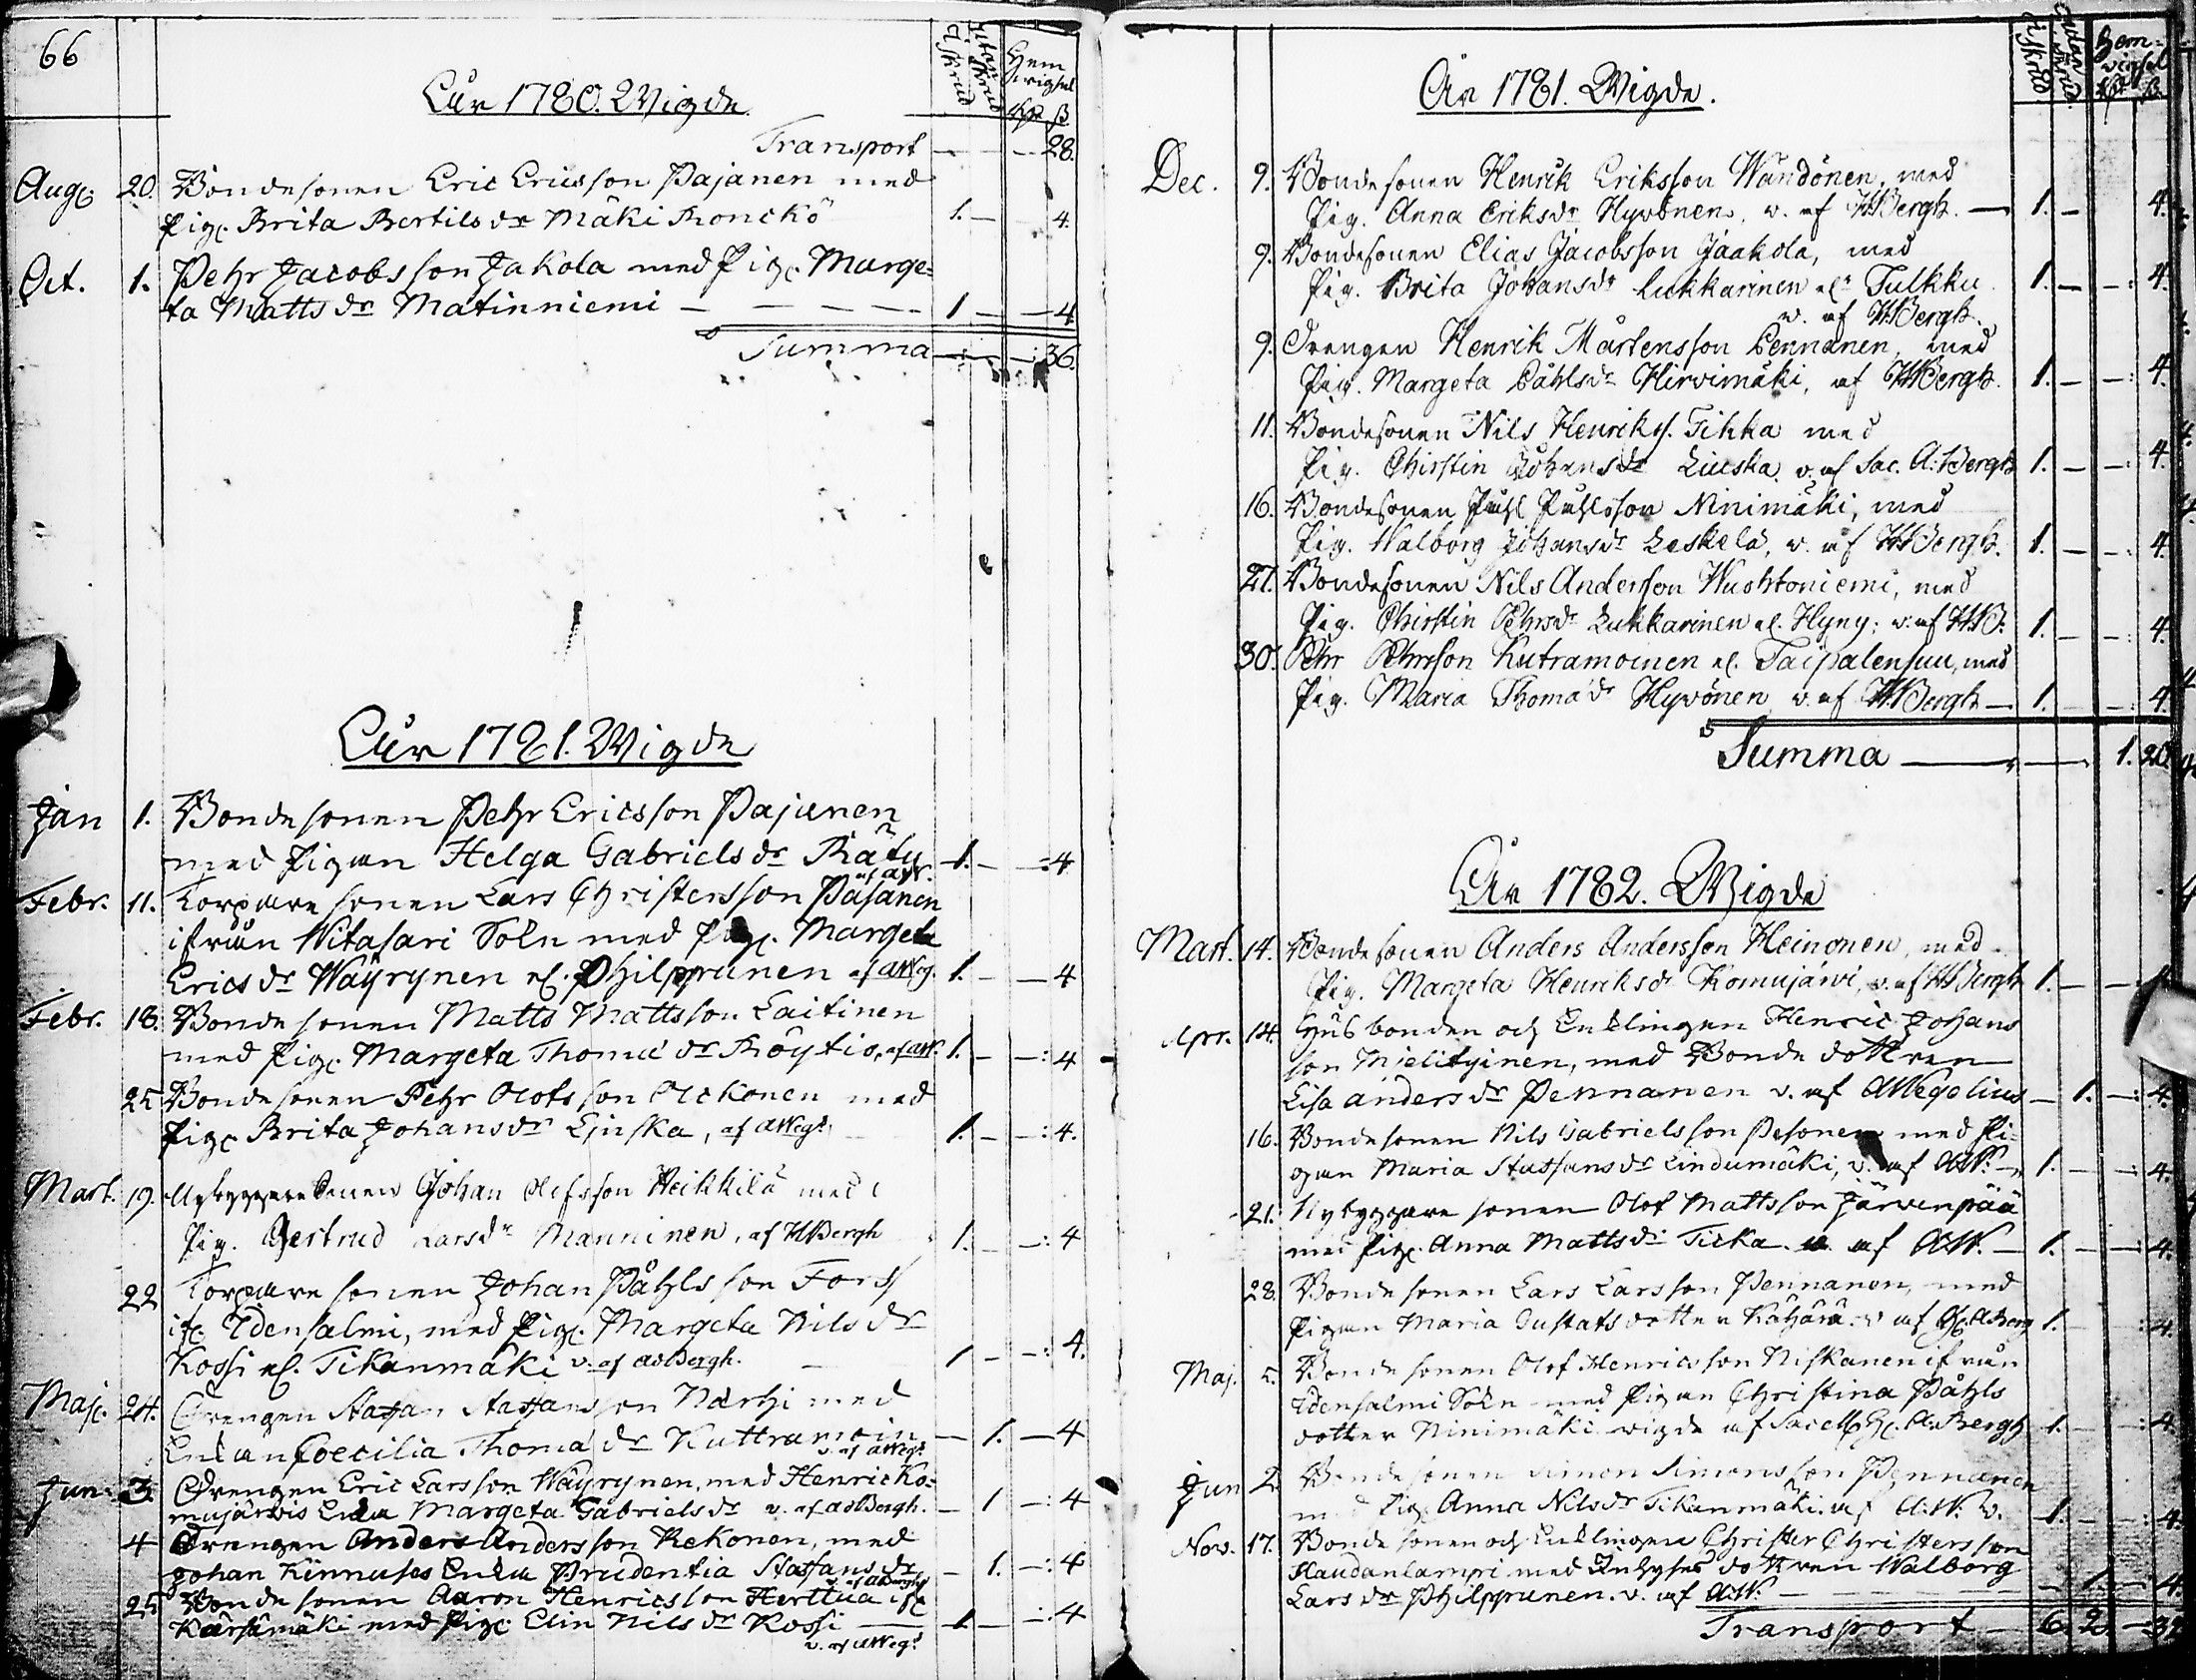 66
i skrud
utan skrud
Hem
wigsel
Rdr ß
Åhr 1780. Wigde
Transport — — 28.
Aug: 20. Bondesonen Eric Ericsson Pajanen med
Pig: Brita Bertilsdr Mäki Ronckö 1. — 4.
Oct. 1. Pehr Jacobsson Jakola med Pig: Marge=
ta Matts dr Matinniemi — — — — 1 — — 4
Summa — : — : 36.
Åhr 1781. Wigde
Jan 1. Bondesonen Pehr Ericsson Pajanen
med Pigan Helga Gabriels dr Räty 1. — : 4
af AW.
Febr. 11. Torpare sonen Lars Christersson Pasanen
ifrån Witasari Sokn med Pig: Margeta
Erics dr Wäyrynen el. Philppunen af AWeg. 1. — — 4
Febr. 18. Bonde sonen Matts Mattsson Laitinen
med Pig: Margeta Thomæ dr Röytio, af AW. 1. — — : 4
25 Bonde sonen Pehr Olofsson Olckonen med
Pig: Brita Johansdr Ljuska, af AWegs 1. — — : 4.
Mart. 19. Nybyggare sonen Johan Olofsson Heikkilä med
Pig. Gertrud Larsdr Manninen, af HBergh 1. — : 4
22 Torpare sonen Johan Påhlsson Forss
if: Idensalmi, med Pig: Margeta Nils dr
Kossi el. Tikanmäki v. af AdBergh. — 1 — — : 4.
Maj: 24. Drengen Staffan Staffansson Närhi med
Enkan Coecilia Thomæ dr Kuttramoin — 1. — 4
v. af AWegs
Jun: 3. Drengen Eric Larsson Wäyrynen, med Henric Ko=
mujärvis Enka Margeta Gabriels dr v. af AdBergh. — 1 — : 4
4 Drengen Anders Andersson Rekonen, med
Johan Kinnuses Enka Prudentia Staffans dr — 1. — : 4
v. af ABergh
25 Bonde sonen Aaron Henricsson Herttua if:
Kärsämäki med Pig: Elin Nils dr Kossi — 1 — : 4
v. af AWegs
i skrud
utan skrud
Hem=
wigsel
Rdr ß.
År 1781. Wigde.
Dec. 9. Bonde sonen Henrik Eriksson Wandönen, med
Pig. Anna Eriksdr Hyvönen, v. af HBergh. — 1. — 4.
9. Bondesonen Elias Jacobsson Jaakola, med
Pig. Brita Johansdr Lukkarinen elr Tulkku. 1. — — : 4.
v. af HBergh.
9. Drengen Henrik Mårtensson Pennanen, med
Pig. Margeta Påhlsdr Hirvimäki, af HBergh. 1. — — : 4.
11. Bondesonen Nils Henriks. Tikka med
Pig. Christin Johansdr Liuska v. af Sac. A: Bergh 1. — — : 4.
16. Bondesonen Påhl Påhlsson Ninimäki, med
Pig. Walborg Johansdr Leskelä, v. af HBergh. 1. — — : 4.
27. Bondesonen Nils Andersson Wuohtoniemi, med
Pig. Christin Pehrsdr Lukkarinen el. Hyny: v. af HB: 1. — — : 4.
30. Pehr Pehrsson Kutramoinen el. Taipalensuu, med
Pig. Maria Thomæ dr Hyvönen v. af HBergh — 1. — — : 4.
Summa — — 1. 20.
År 1782. Wigde
Mart. 14. Bonde sonen Anders Andersson Heinonen, med
Pig. Margeta Henriksdr Komujärvi, v. af HBergh 1. —
Apr. 14. Husbonden och Enklingen Henric Johans
son Mielityinen, med Bonde dottren
Lisa Anders dr Pennanen v. af AWegelius — 1. — : 4.
16. Bonde sonen Nils Gabrielsson Pesonen med Pi=
gan Maria Staffansdr Lindumäki, v. af AW. — 1. — — : 4.
21. Nybyggare sonen Olof Mattsson Järvenpää
med Pig: Anna Mattsdr Ticka. v. af AW. — 1. — — : 4.
28. Bonde sonen Lars Larsson Pennanen, med
Pigan Maria Gustafs dotter Kähärä. v. af H: A. Berg 1. — : 4.
Maj. 5. Bonde sonen Olof Henricsson Niskanen ifrån
Idensalmi Sokn med Pigan Christina Påhls
dotter Ninimäki wigde af Sacell: H: A. Bergh 1. — : 4.
Jun 2. Bonde sonen Simon Simonsson Pennanen
med Pig: Anna Nilsdr Tikanmäki. af A.W. v. 1. — — : 4.
Nov. 17. Bonde sonen och Enklingen Christer Christersson
Haudanlampi med Inhyses dottren Walborg
Lars dr Philppunen. v. af A.W. — — 1. — 4.
Transport — 6. 2. — : 32